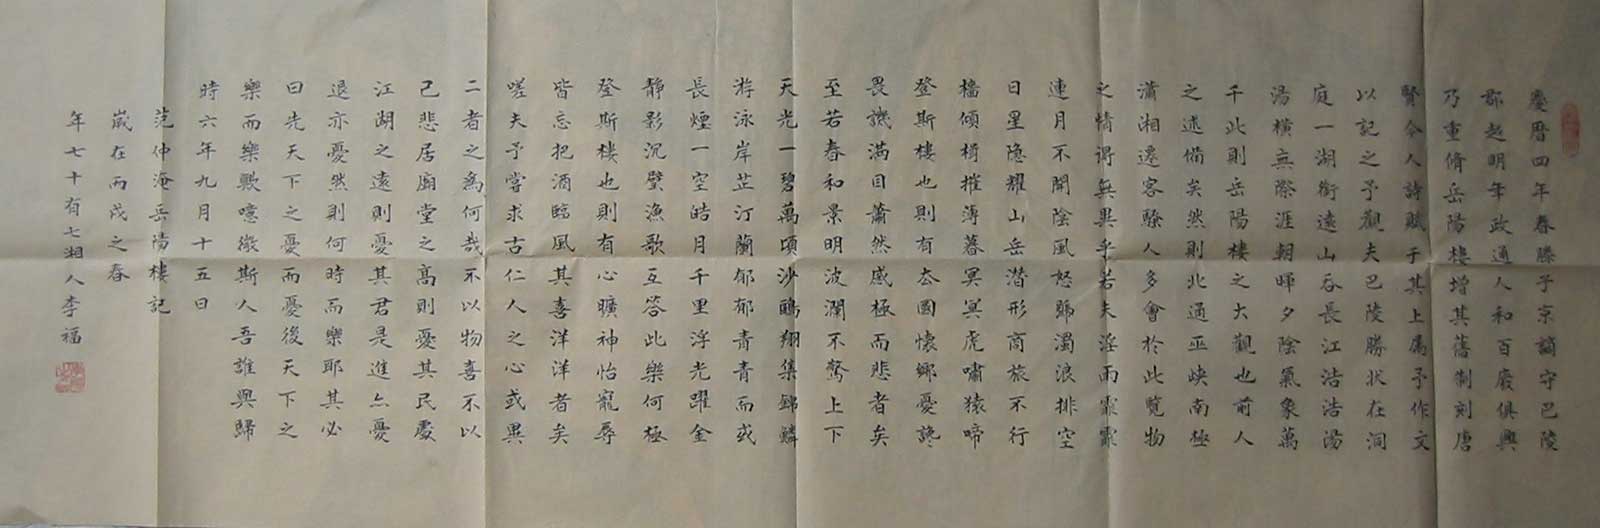 慶曆四年春滕子京謫守巴陵
郡越明年政通人和百廢俱興
乃重脩岳陽樓增其舊制刻唐
賢今人詩賦于其上屬予作文
以記之予觀夫巴陵勝狀在洞
庭一湖銜遠山吞長江浩浩湯
湯橫無際涯朝暉夕陰氣象萬
千此則岳陽樓之大觀也前人
之述備矣然則北通巫峽南極
瀟湘遷客騷人多會於此覽物
之情得無異乎若夫淫雨霏霏
連月不開陰風怒號濁浪排空
日星隱耀山岳潛形商旅不行
檣傾楫摧薄暮冥冥虎嘯猿啼
登斯樓也則有去國懷鄉憂讒
畏譏滿目蕭然感極而悲者矣
至若春和景明波瀾不驚上下
天光一碧萬頃沙鷗翔集錦鱗
游泳岸芷汀蘭郁郁青青而或
長煙一空皓月千里浮光躍金
靜影沉璧漁歌互答此樂何極
登斯樓也則有心曠神怡寵辱
皆忘把酒臨風其喜洋洋者矣
嗟夫予嘗求古仁人之心或異
二者之為何哉不以物喜不以
己悲居廟堂之高則憂其民處
江湖之遠則憂其君是進亦憂
退亦憂然則何時而樂耶其必
曰先天下之憂而憂後天下之
樂而樂歟噫微斯人吾誰與歸
時六年九月十五日
范仲淹岳陽樓記
歲在丙戌之春
年七十有七湘人李福